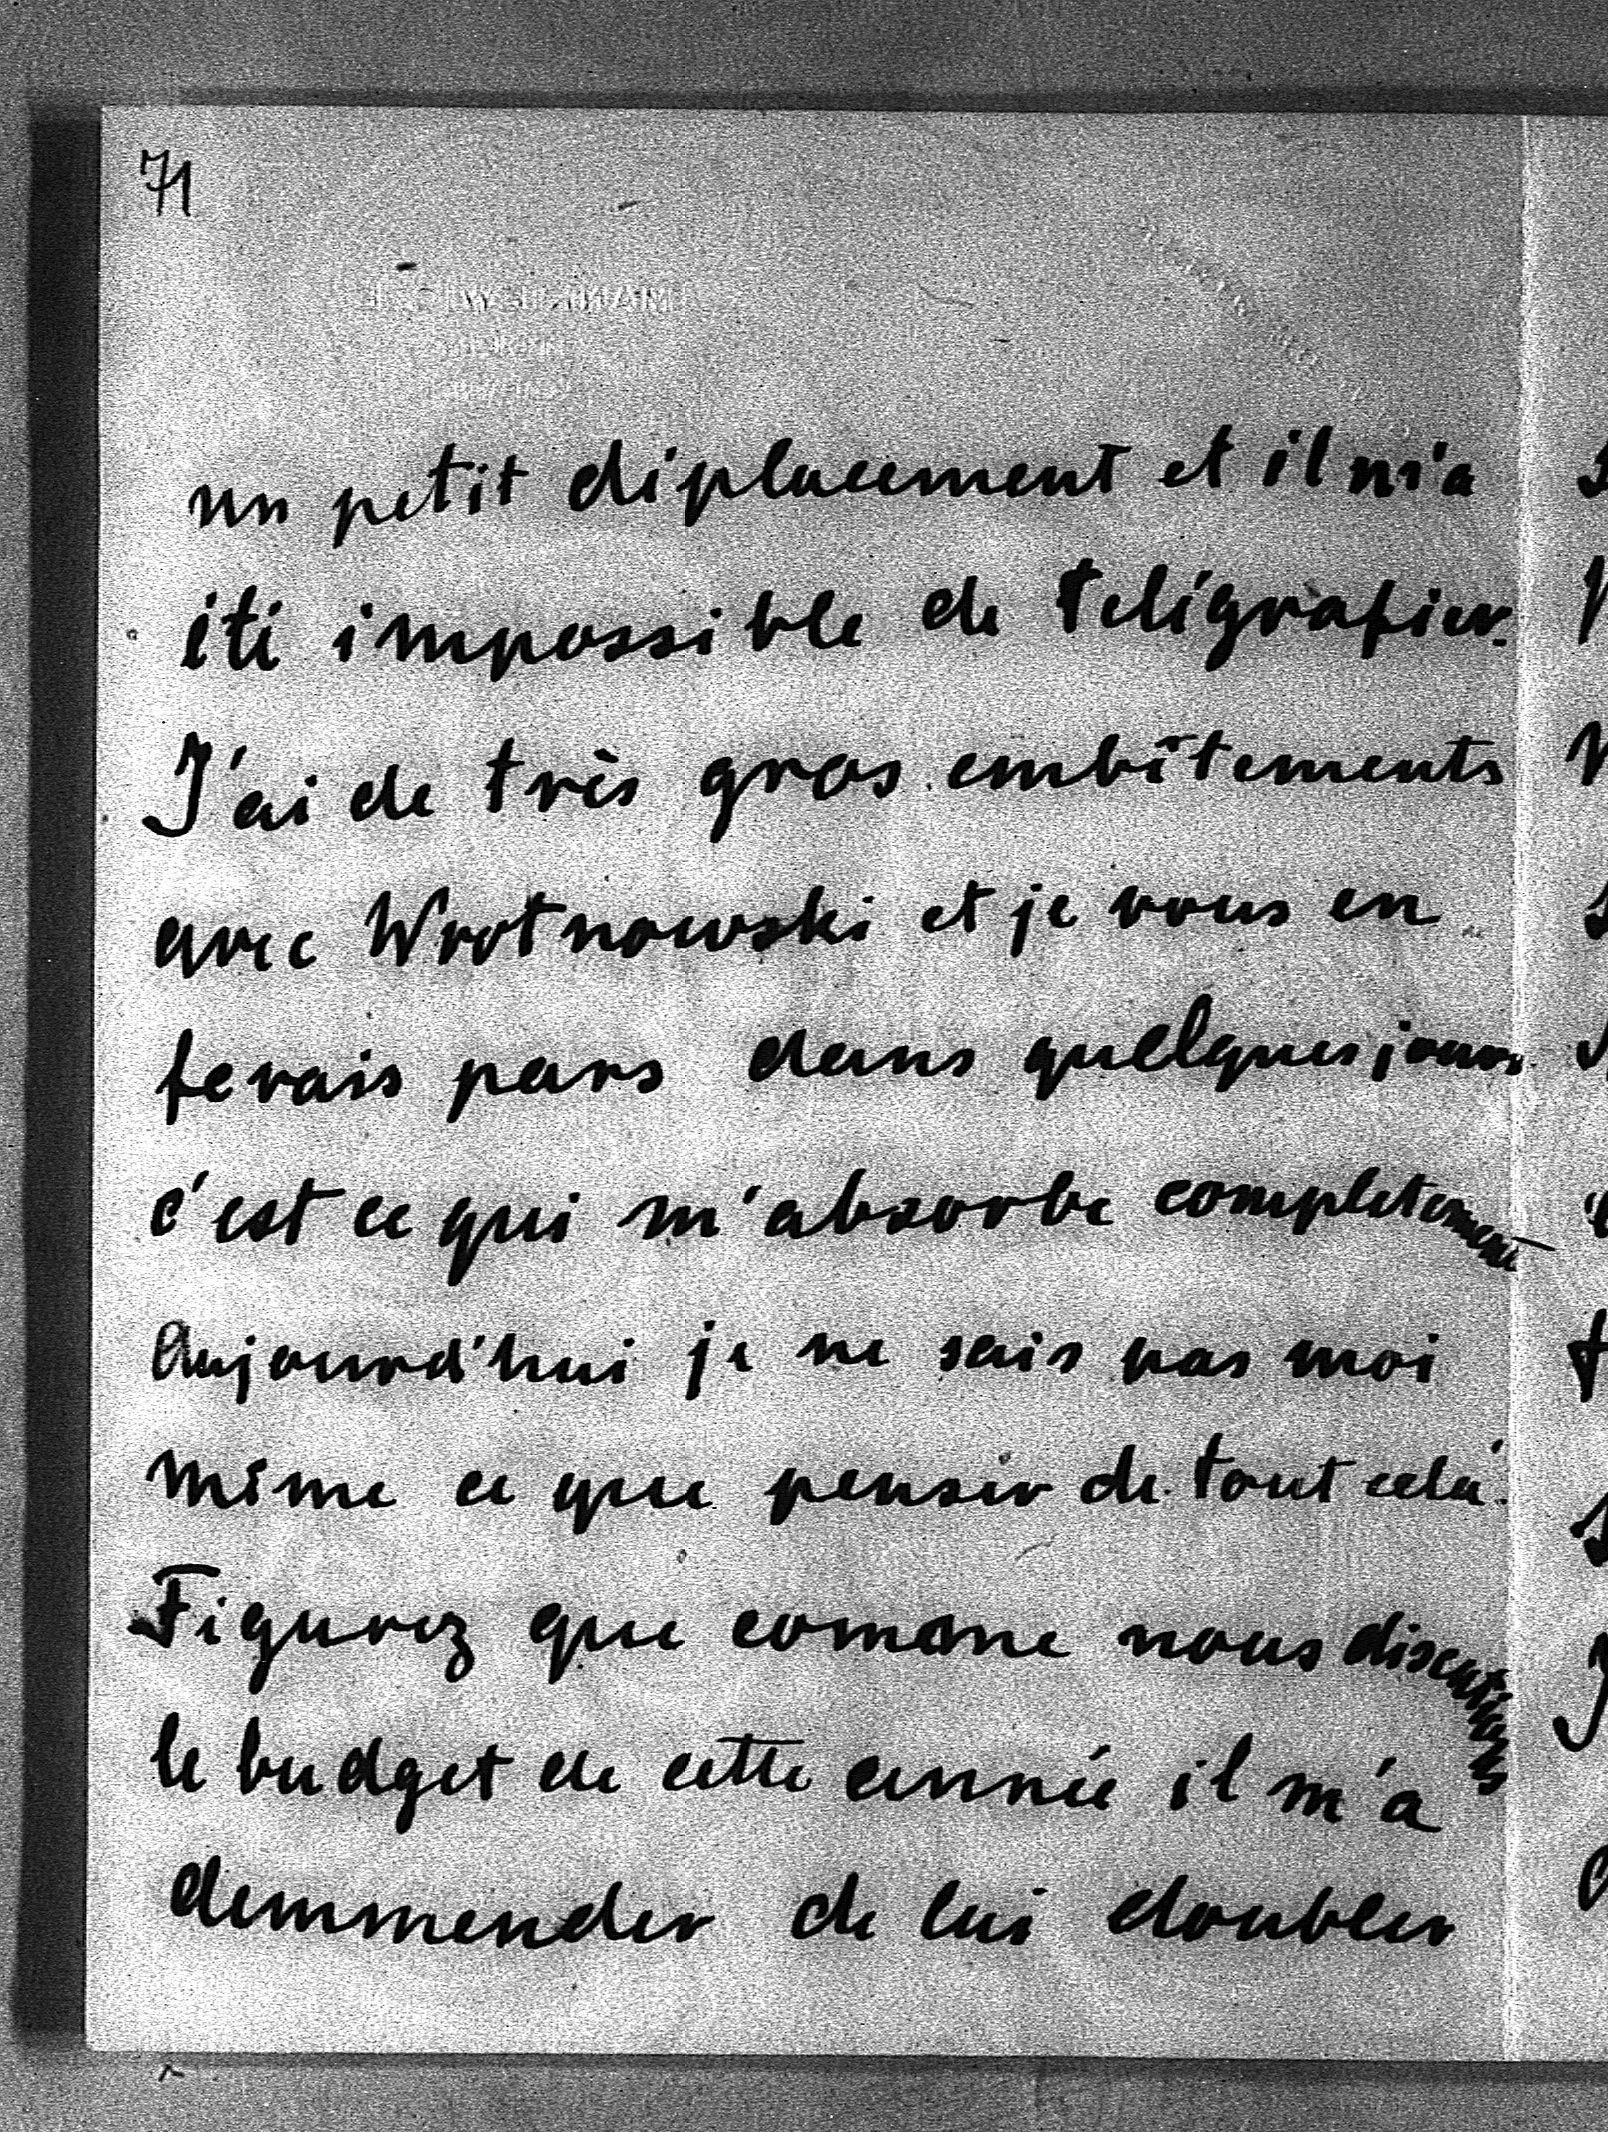 71
un petit déplacement et il m'a
été impossible de teligrafier.
J'ai de très gros embêtements
avec Wrotnowski et je vous en
ferais pars dans quelques jours
c'est ce qui m'absorbe completement
Aujourd'hui je ne sais pas moi
même ce que penser de tout celà.
Figurez que comme nous discutions
le budget de cette année il m'a
demmender de lui doubler